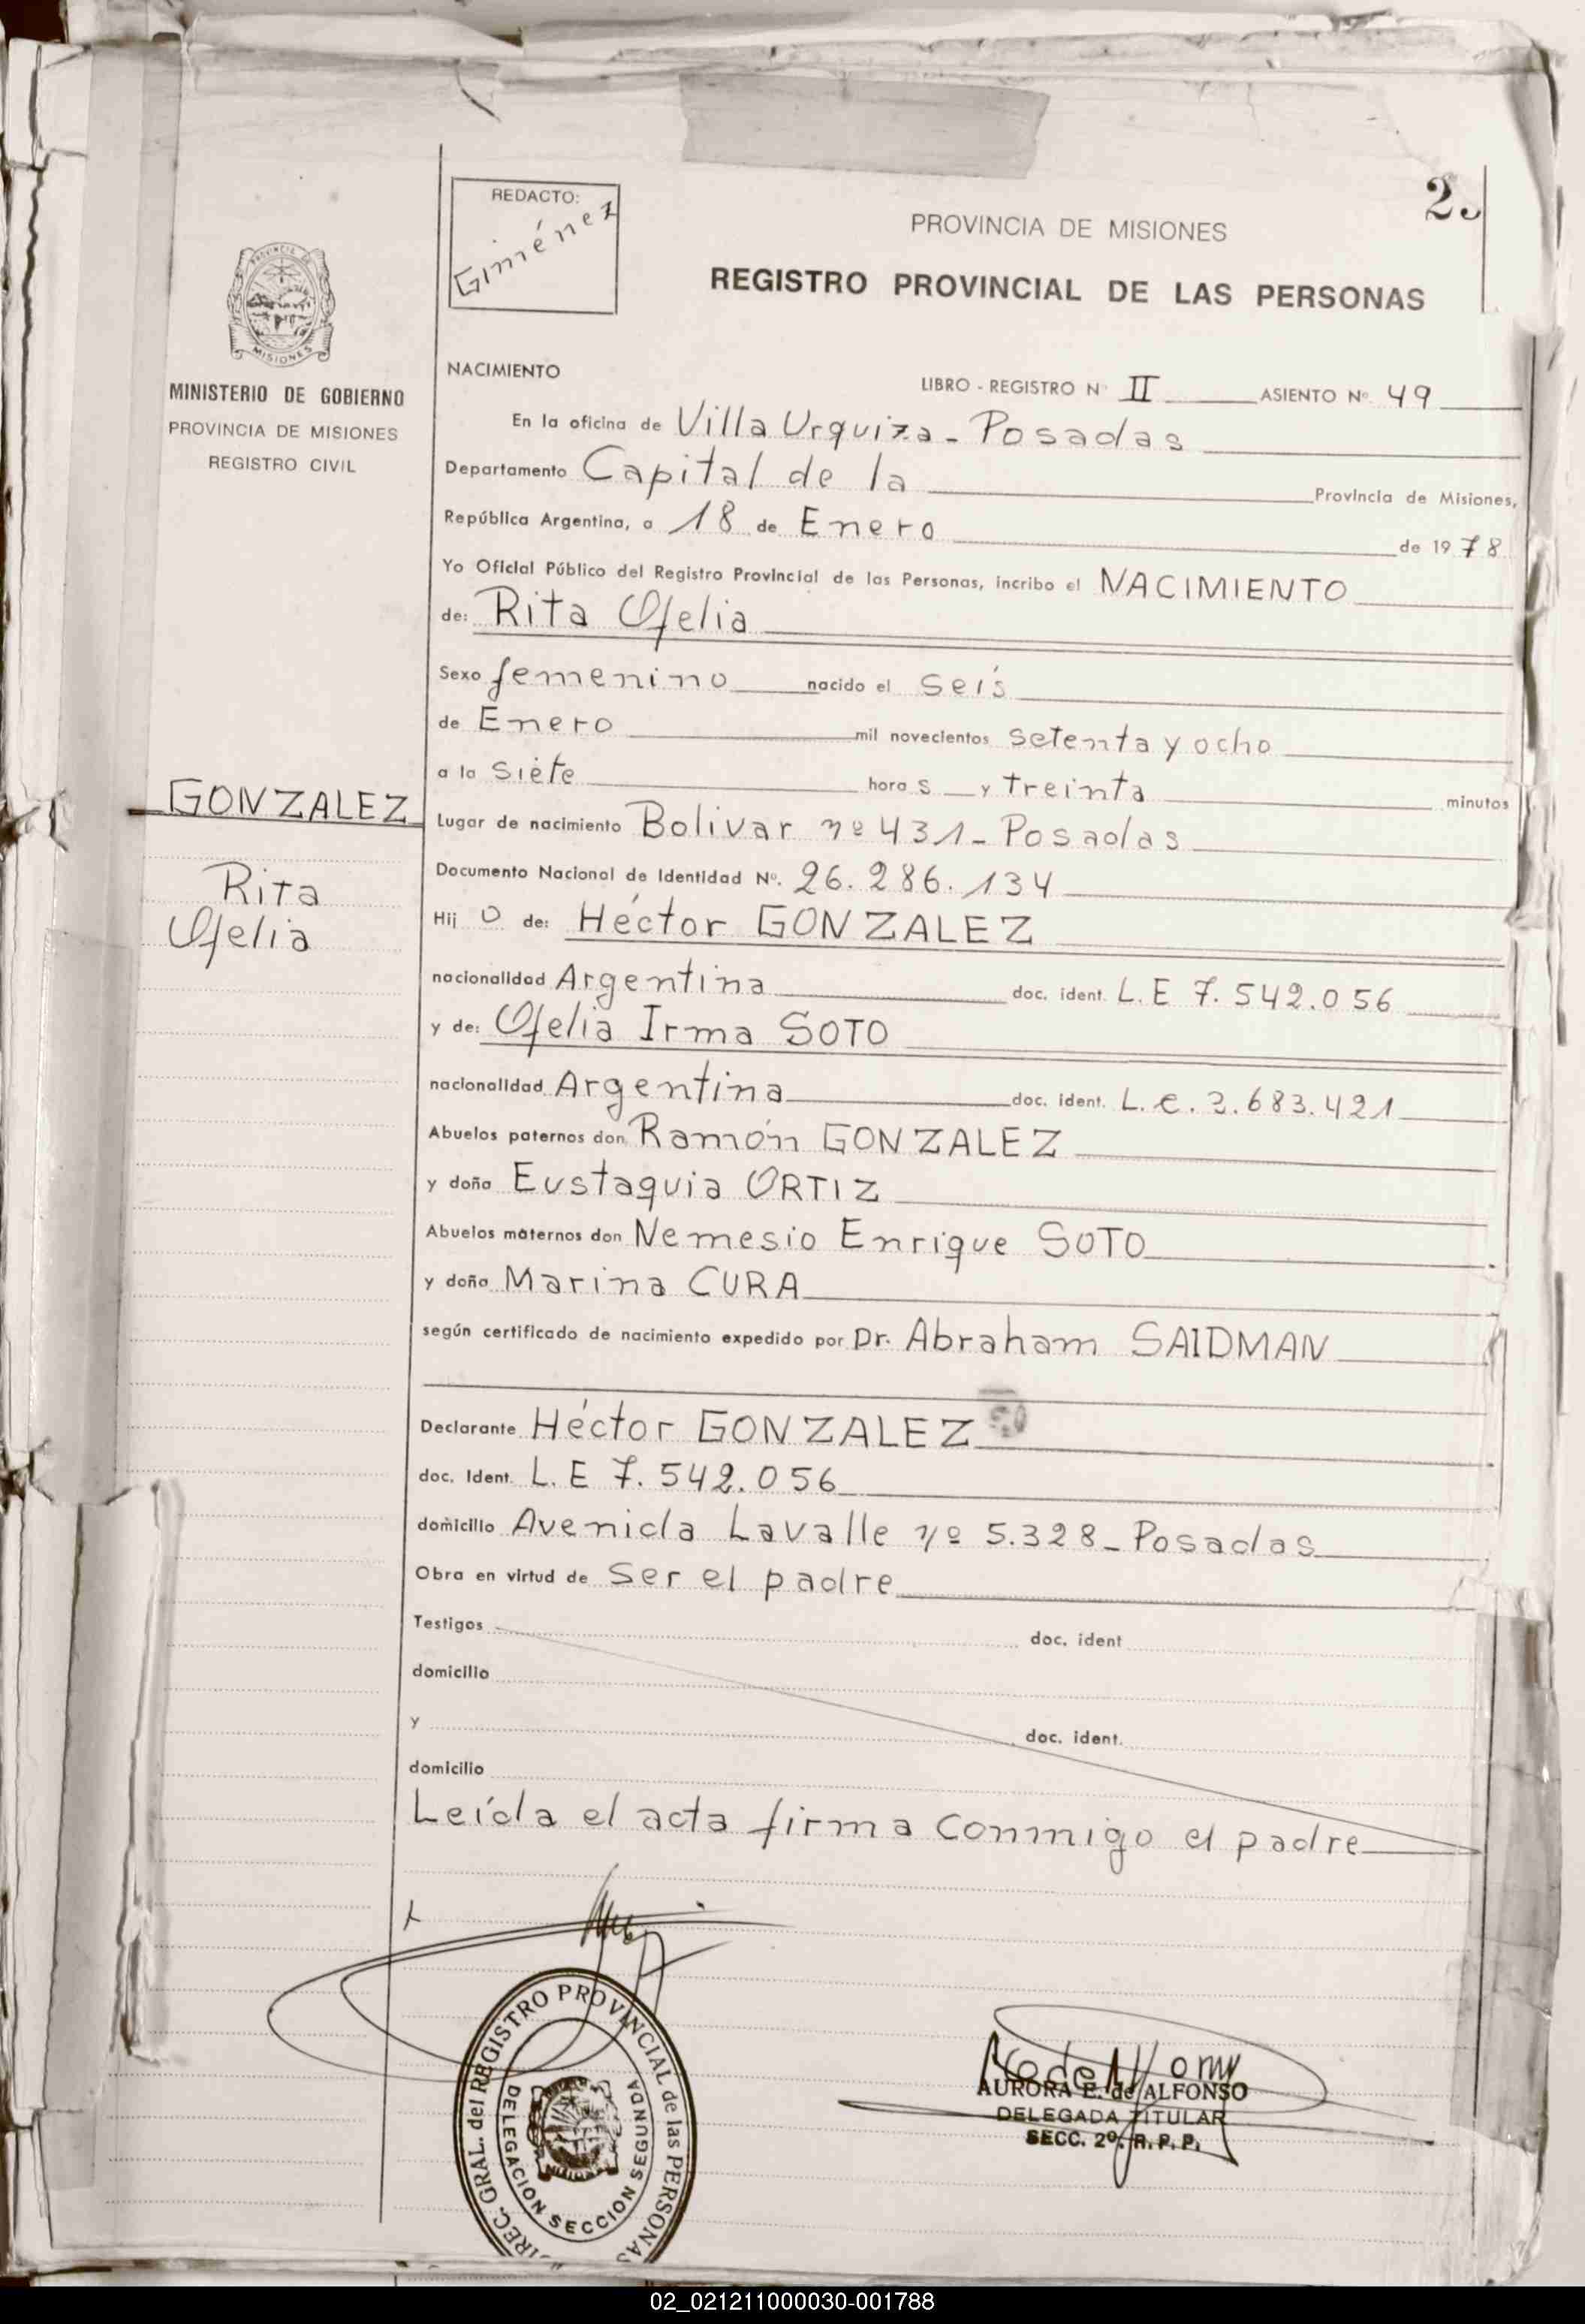 2.
REDACTO:
Giménez
PROVINCIA DE MISIONES
REGISTRO PROVINCIAL DE LAS PERSONAS
PROVINCIA DE
MISIONES
MINISTERIO DE GOBIERNO
PROVINCIA DE MISIONES
REGISTRO CIVIL
NACIMIENTO
LIBRO - REGISTRO Nº II ASIENTO Nº 49
En la oficina de Villa Urquiza - Posadas
Departamento Capital de la Provincia de Misiones,
República Argentina, a 18 de Enero de 1978
Yo Oficial Público del Registro Provincial de las Personas, incribo el NACIMIENTO
de: Rita Ofelia
Sexo femenino nacido el seis
de Enero mil novecientos setenta y ocho
a la siete hora s y treinta minutos
GONZALEZ
Rita
Ofelia
Lugar de nacimiento Bolivar nº 431 - Posadas
Documento Nacional de Identidad Nº. 26.286.134
Hij o de: Héctor GONZALEZ
nacionalidad Argentina doc. ident. L.E 7.542.056
y de: Ofelia Irma SOTO
nacionalidad Argentina doc. ident. L.C. 2.683.421
Abuelos paternos don Ramón GONZALEZ
y doña Eustaquia ORTIZ
Abuelos maternos don Nemesio Enrique SOTO
y doña Marina CURA
según certificado de nacimiento expedido por Dr. Abraham SAIDMAN
Declarante Héctor GONZALEZ
doc. Ident. L.E 7.542.056
domicilio Avenida Lavalle nº 5.328 - Posadas
Obra en virtud de ser el padre
Testigos doc. ident
domicilio
y doc. ident.
domicilio
Leída el acta firma conmigo el padre
DIREC. GRAL. del REGISTRO PROVINCIAL de las PERSONAS
DELEGACION SECCION SEGUNDA
MISIONES
AURORA E. de ALFONSO
DELEGADA TITULAR
SECC. 2º. R. P. P.
02_021211000030-001788